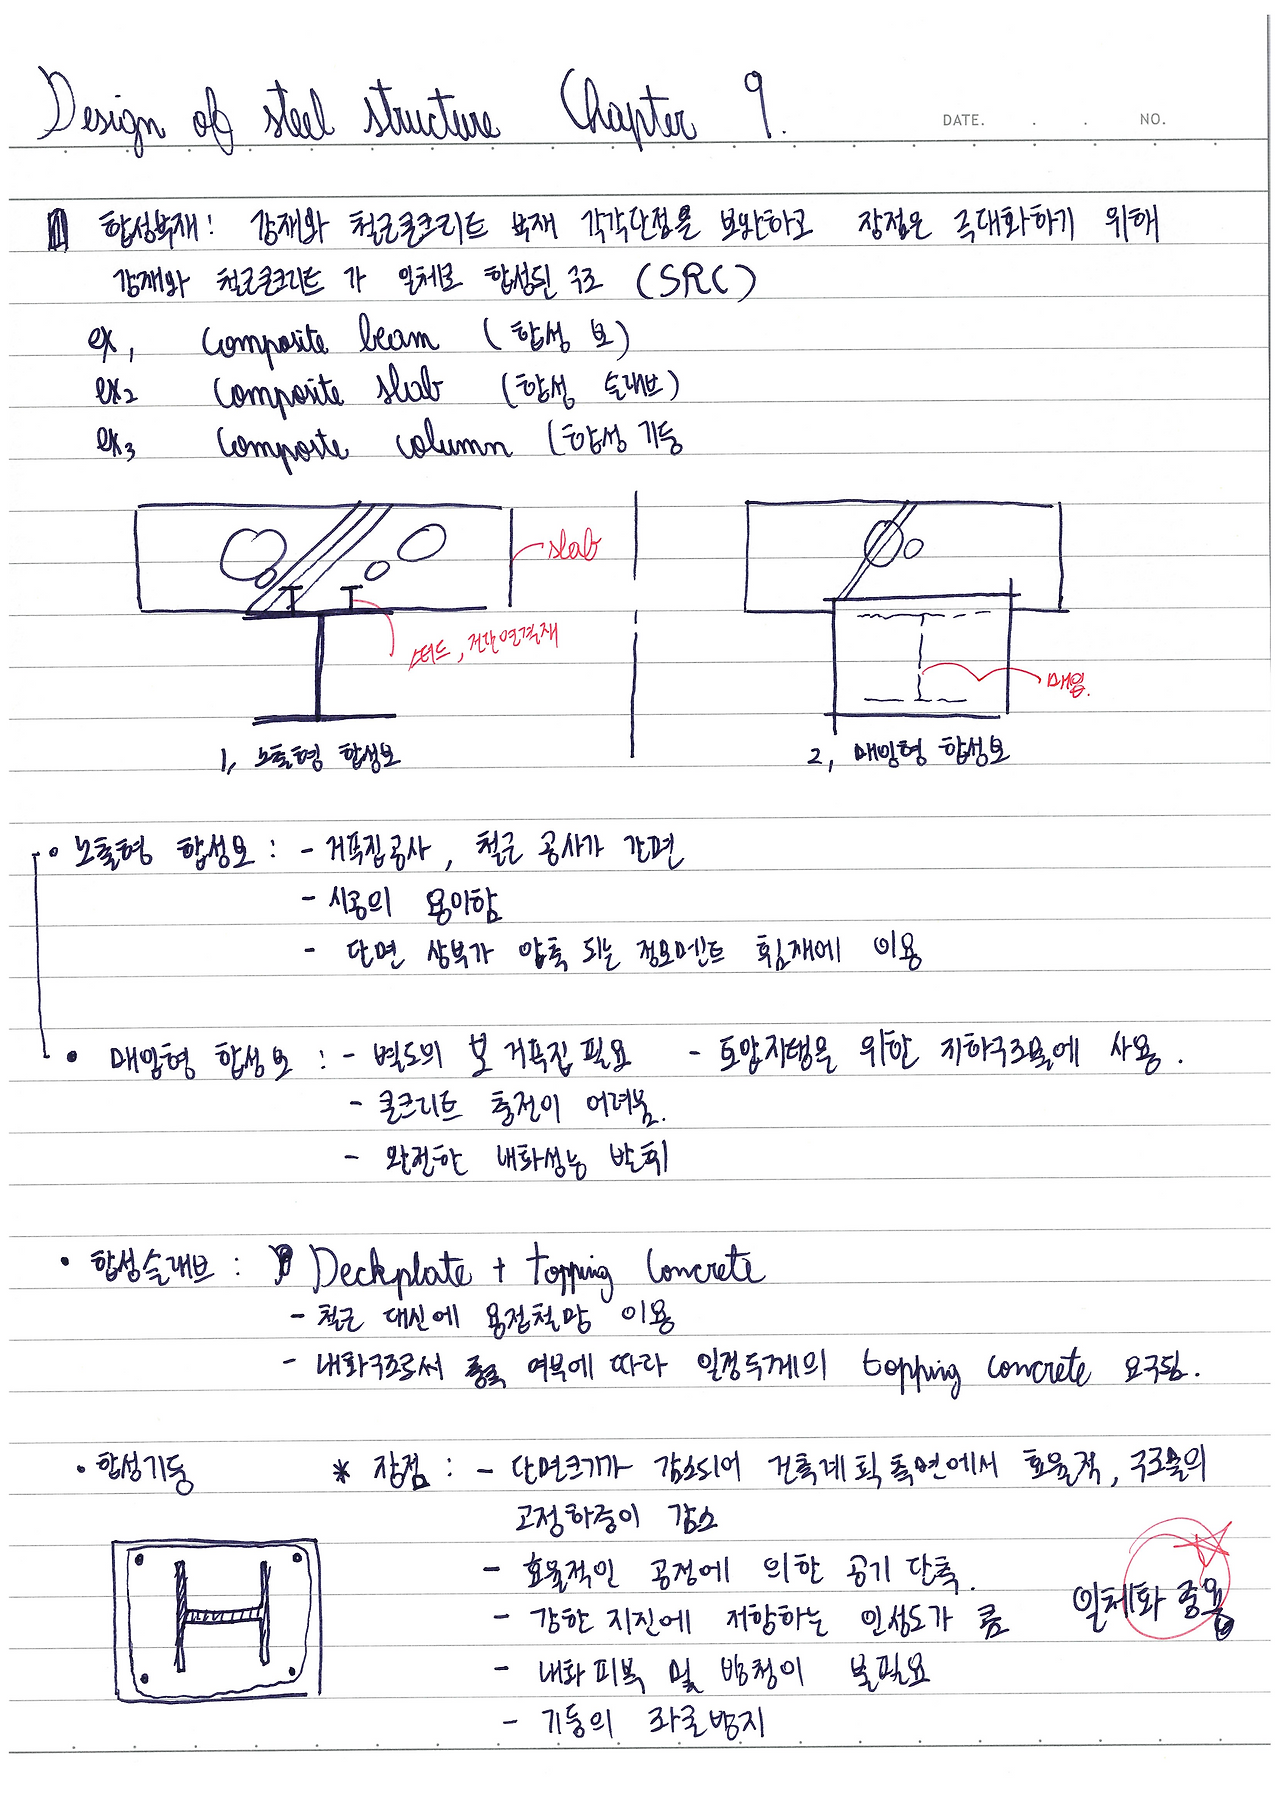 Design of steel structure Chapter 9.
DATE. . . NO.
1 합성부재 : 강재와 철근콘크리트 부재 각각단점을 보완하고 장점은 극대화하기 위해
강재와 철근콘크리트가 일체로 합성된 구조 (SRC)
ex1 Composite beam (합성 보)
ex2 Composite slab (합성 슬래브)
ex3 Composte column (합성기둥
slab
스터드, 전단연결재
매입.
1, 노출형 합성보
2, 매입형 합성보
• 노출형 합성보 : - 거푸집공사, 철근 공사가 간편
- 시공의 용이함
- 단면 상부가 압축 되는 정모멘트 휨재에 이용
• 매입형 합성보 : - 별도의 보 거푸집 필요 - 토압지탱을 위한 지하구조물에 사용.
- 콘크리트 충전이 어려움.
- 완전한 내화성능 발휘
• 합성슬래브 : Deckplate + topping Concrete
- 철근 대신에 용접철망 이용
- 내화구조로써 여부에 따라 일정두께의 topping concrete 요구됨.
• 합성기둥 * 장점 : - 단면크기가 감소되어 건축계획측면에서 효율적, 구조물의
고정하중이 감소
- 효율적인 공정에 의한 공기 단축.
- 강한 지진에 저항하는 인성도가 큼
일체화 중요
- 내화피복 및 방청이 불필요
- 기둥의 좌굴방지